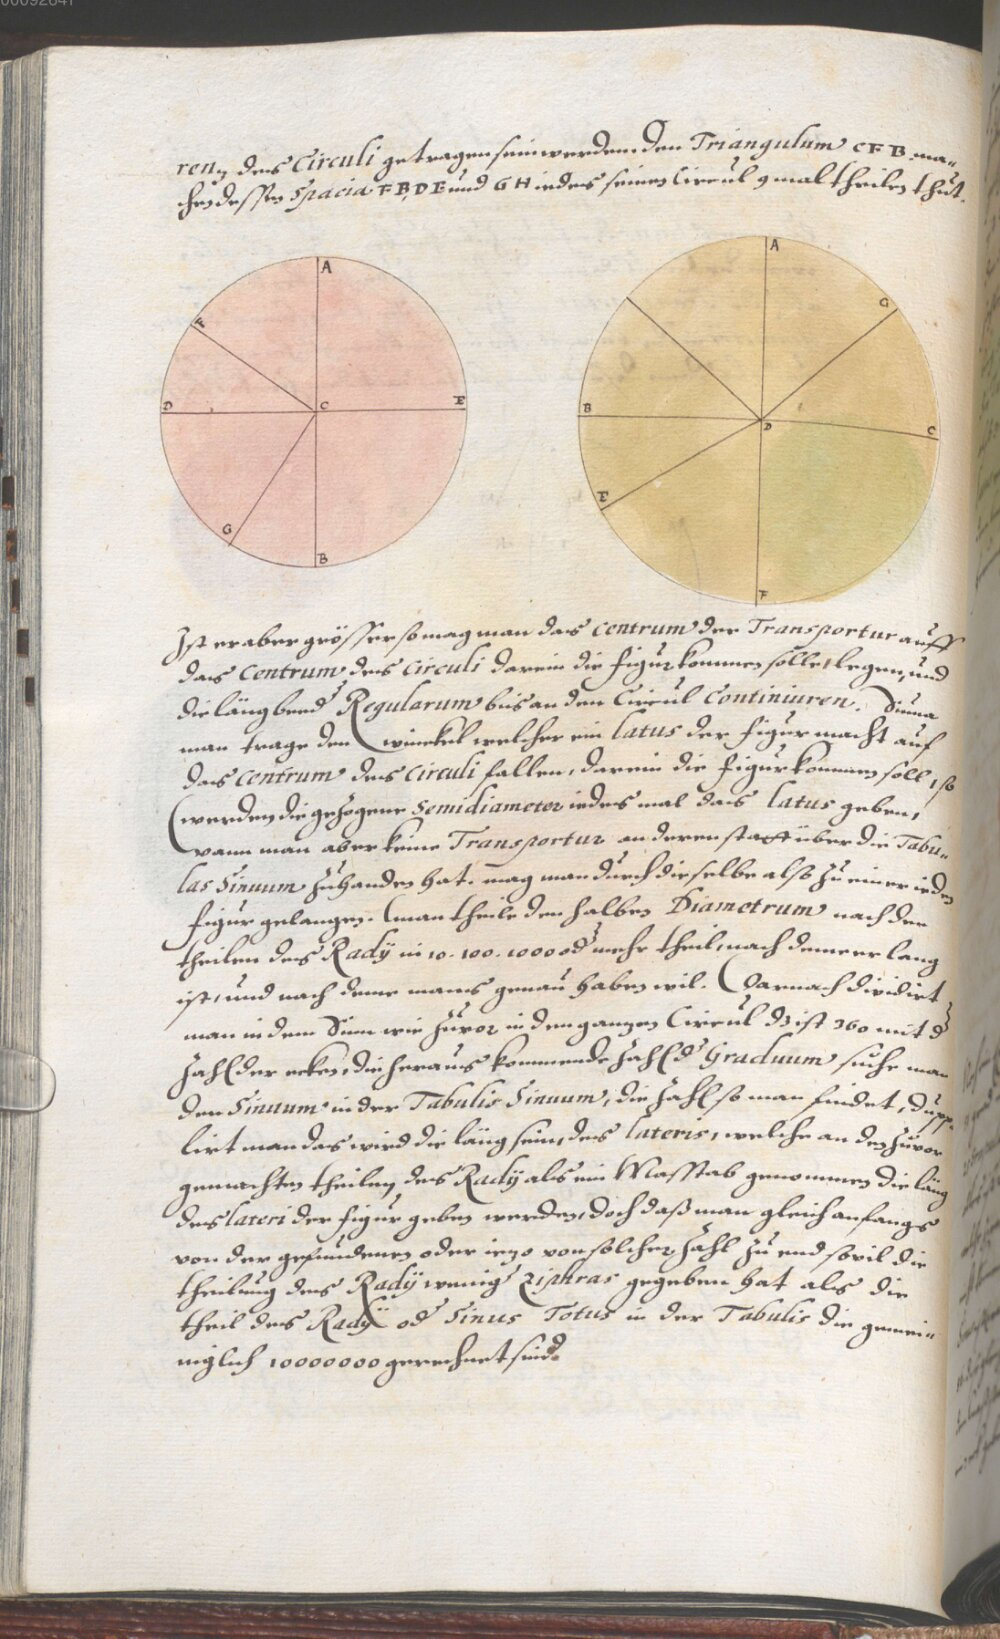 00092641
ren, des Circuli getragen sein werden. Den Triangulum CFB ma-
chen dessen Spacia FB, DE und GH iedes seinen Circul 9 mal theilen thut.
A
F
D
C
E
G
B
A
G
B
D
C
E
F
Ist er aber grösser so mag man das Centrum der Transportur auff
das Centrum des Circuli darein die figur kommen solle, legen, und
die läng beed Regularum bis an den Circul Continiuren.
man trage den winckel welcher ein latus der figur macht auf
das Centrum des Circuli fallen, darein die figur kommen soll, so
werden die gezogene Semidiameter iedes mal das latus geben,
wann man aber keine Transportur an deren statt über die Tabu-
las Sinuum zuhanden hat. mag man durch dieselbe also zu einer ieden
figur gelangen. man theile den halben Diametrum nach den
theilen des Radÿ in 10. 100. 1000 od mehr theil, nach deme er lang
ist, und nach deme mans genau haben wil. Darnach dividirt
man in dem Sinn wie zuvor in den ganzen Circul dz ist 360 mit d
zahl der ecken, die heraus kommende zahl d Graduum suche man
den Sinuum in der Tabulis Sinuum, die zahl so man findet, dupp-
lirt man das wird die läng sein, des lateris, welche an den zuvor
gemachten theilen des Radÿ als ein Masstab genommen die läng
des lateri der figur geben werden, doch daß man gleich anfangs
von der gefundenen oder iezo von solcher zahl zu end sovil die
theilung des Radÿ wenig ziphras gegeben hat als die
theil des Radÿ od Sinus Totus in der Tabulis die gemein-
niglich 10000000 gerechnet sind.